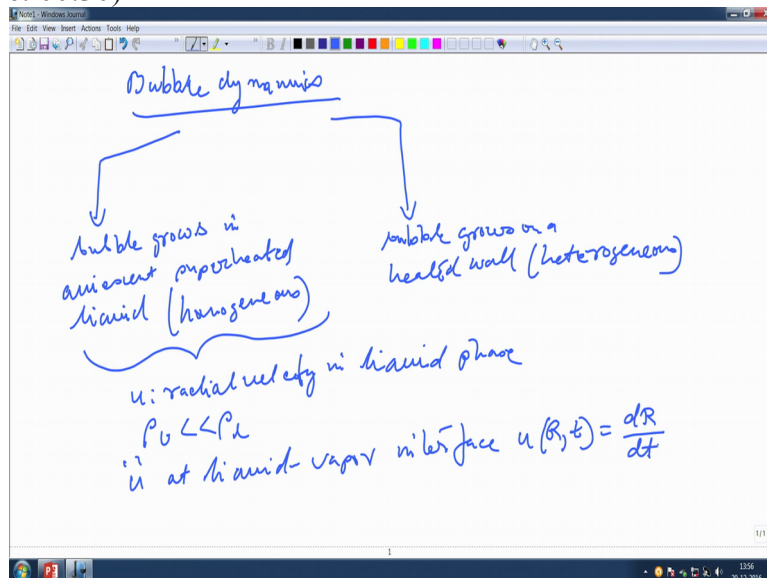 Note1 - Windows Journal
File Edit View Insert Actions Tools Help
Bubble dynamics
bubble grows in
quiescent superheated
liquid (homogeneous)
bubble grows on a
heated wall (heterogeneous)
u: radial velocity in liquid phase
ρv << ρl
at liquid-vapor interface u(R,t) = dR/dt
1/1
1
13:56
20-12-2016